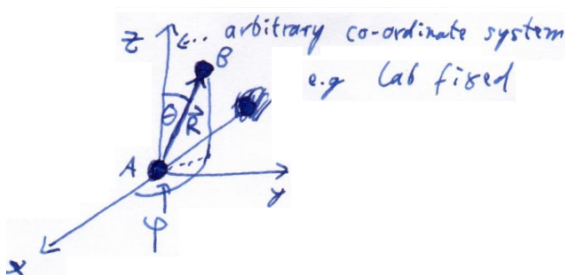 z <... arbitrary co-ordinate system
B e.g Lab fixed
θ R⃗
A
y
φ
x